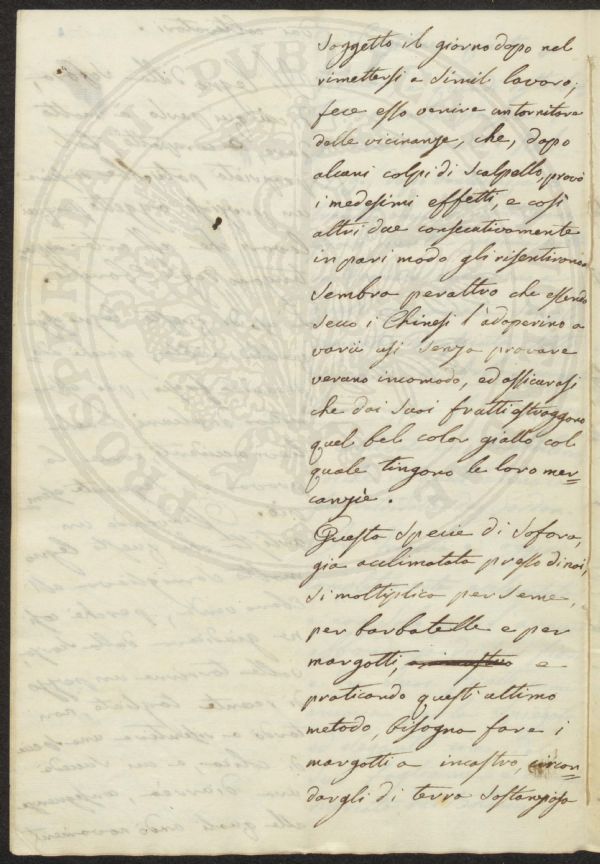 soggetto il giorno dopo nel
rimettersi a simil lavoro;
fece esso venire un tornitore
dalle vicinanze, che, dopo
alcuni colpi di scalpello, provò
i medesimi effetti, e così
altri due consecutivamente
in pari modo gli risentirono.
Sembra peraltro che essendo
secco i Chinesi l'adoperino a
varii usi senza provare
veruno incomodo, ed assicurasi
che dai suoi frutti estraggono
quel bel color giallo col
quale tingono le loro mer=
canzie.
Questa specie di Sofora,
già acclimatata presso di noi,
si moltiplica per seme,
per barbatelle e per
margotti, e
praticando quest'ultimo
metodo, bisogna fare i
margotti a incastro, circon=
dargli di terra sostanziosa
PROSPERITATI PUBLICAE